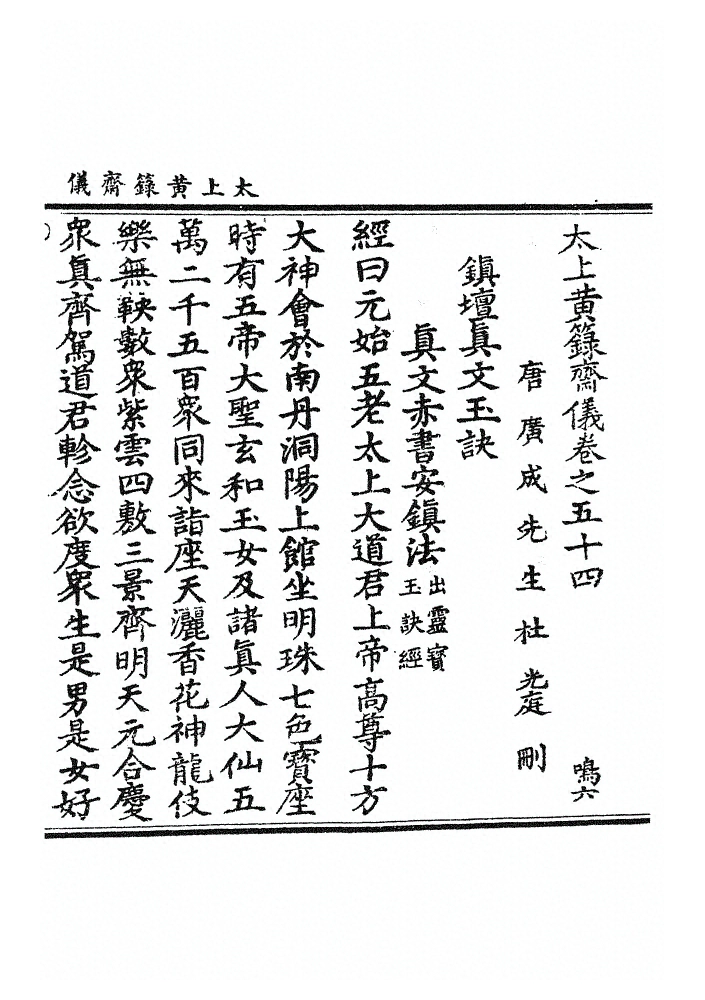 太上黄籙齋儀
太上黄籙齋儀卷之五十四 鳴六
唐廣成先生杜光庭刪
鎮壇真文玉訣
眞文赤書安鎮法出靈寳玉訣經
經曰元始五老太上大道君上帝高尊十方
大神會於南丹洞陽上館坐明珠七色寳座
時有五帝大聖玄和玉女及諸眞人大仙五
萬二千五百衆同來詣座天灑香花神龍伎
樂無鞅數衆紫雲四敷三景齊明天元合慶
衆眞齊駕道君軫念欲度衆生是男是女好